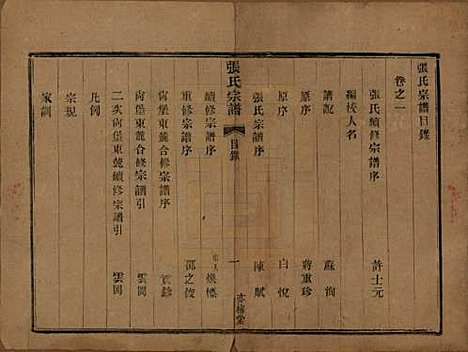 張氏宗譜目錄
卷之一
張氏續修宗譜序 許士元
編校人名
譜說 蘇洵
原序 蔣重珍
原序 白悅
張氏宗譜序 陳賦
張氏宗譜 目錄 一
續修宗譜序
重修宗譜序 邵之俊
尙堡東蔍合修宗譜序
尙堡東蔍合修宗譜引 雲閣
二次尙堡東蔍續修宗譜引 雲閣
凡例
宗規
家訓